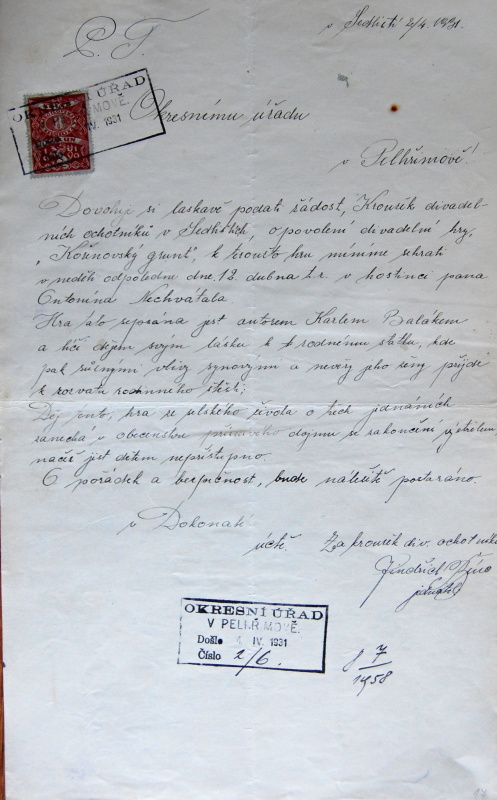 v Sedlišti 2/4. 1931.
P. T.
OKRESNÍ ÚŘAD
IV. 1931
Okresnímu úřadu
v Pelhřimově!
Dovoluje si laskavě podati žádost, Kroužek divadel-
ních ochotníků v Sedlištích, o povolení divadelní hry,
"Kořínovský grunt", k ito hru míníme sehrati
v neděli odpoledne dne. 12. dubna t.r. v hostinci pana
Antonína Nechvátala
Hra tato sepsána jest autorem Karlem Balákem
a líčí dějem svým lásku k rodnému statku, kde
pak různými vlivy synovými a nevěry jeho ženy přijde
k rozvatu rodinného štěstí;
Děj této, hra ze selského života o třech jednáních
zanechá v obecenstvu dojmu se zakončení výstřelem
načež jest dětem nepřístupno.
O pořádek a bezpečnost, bude náležitě postaráno.
v Dokonalé
úctě. Za kroužek div. ochotníků
Jindřich
jednatel
OKRESNÍ ÚŘAD
V PELHŘIMOVĚ.
Došlo IV. 1931
Číslo 2/6.
7
1958